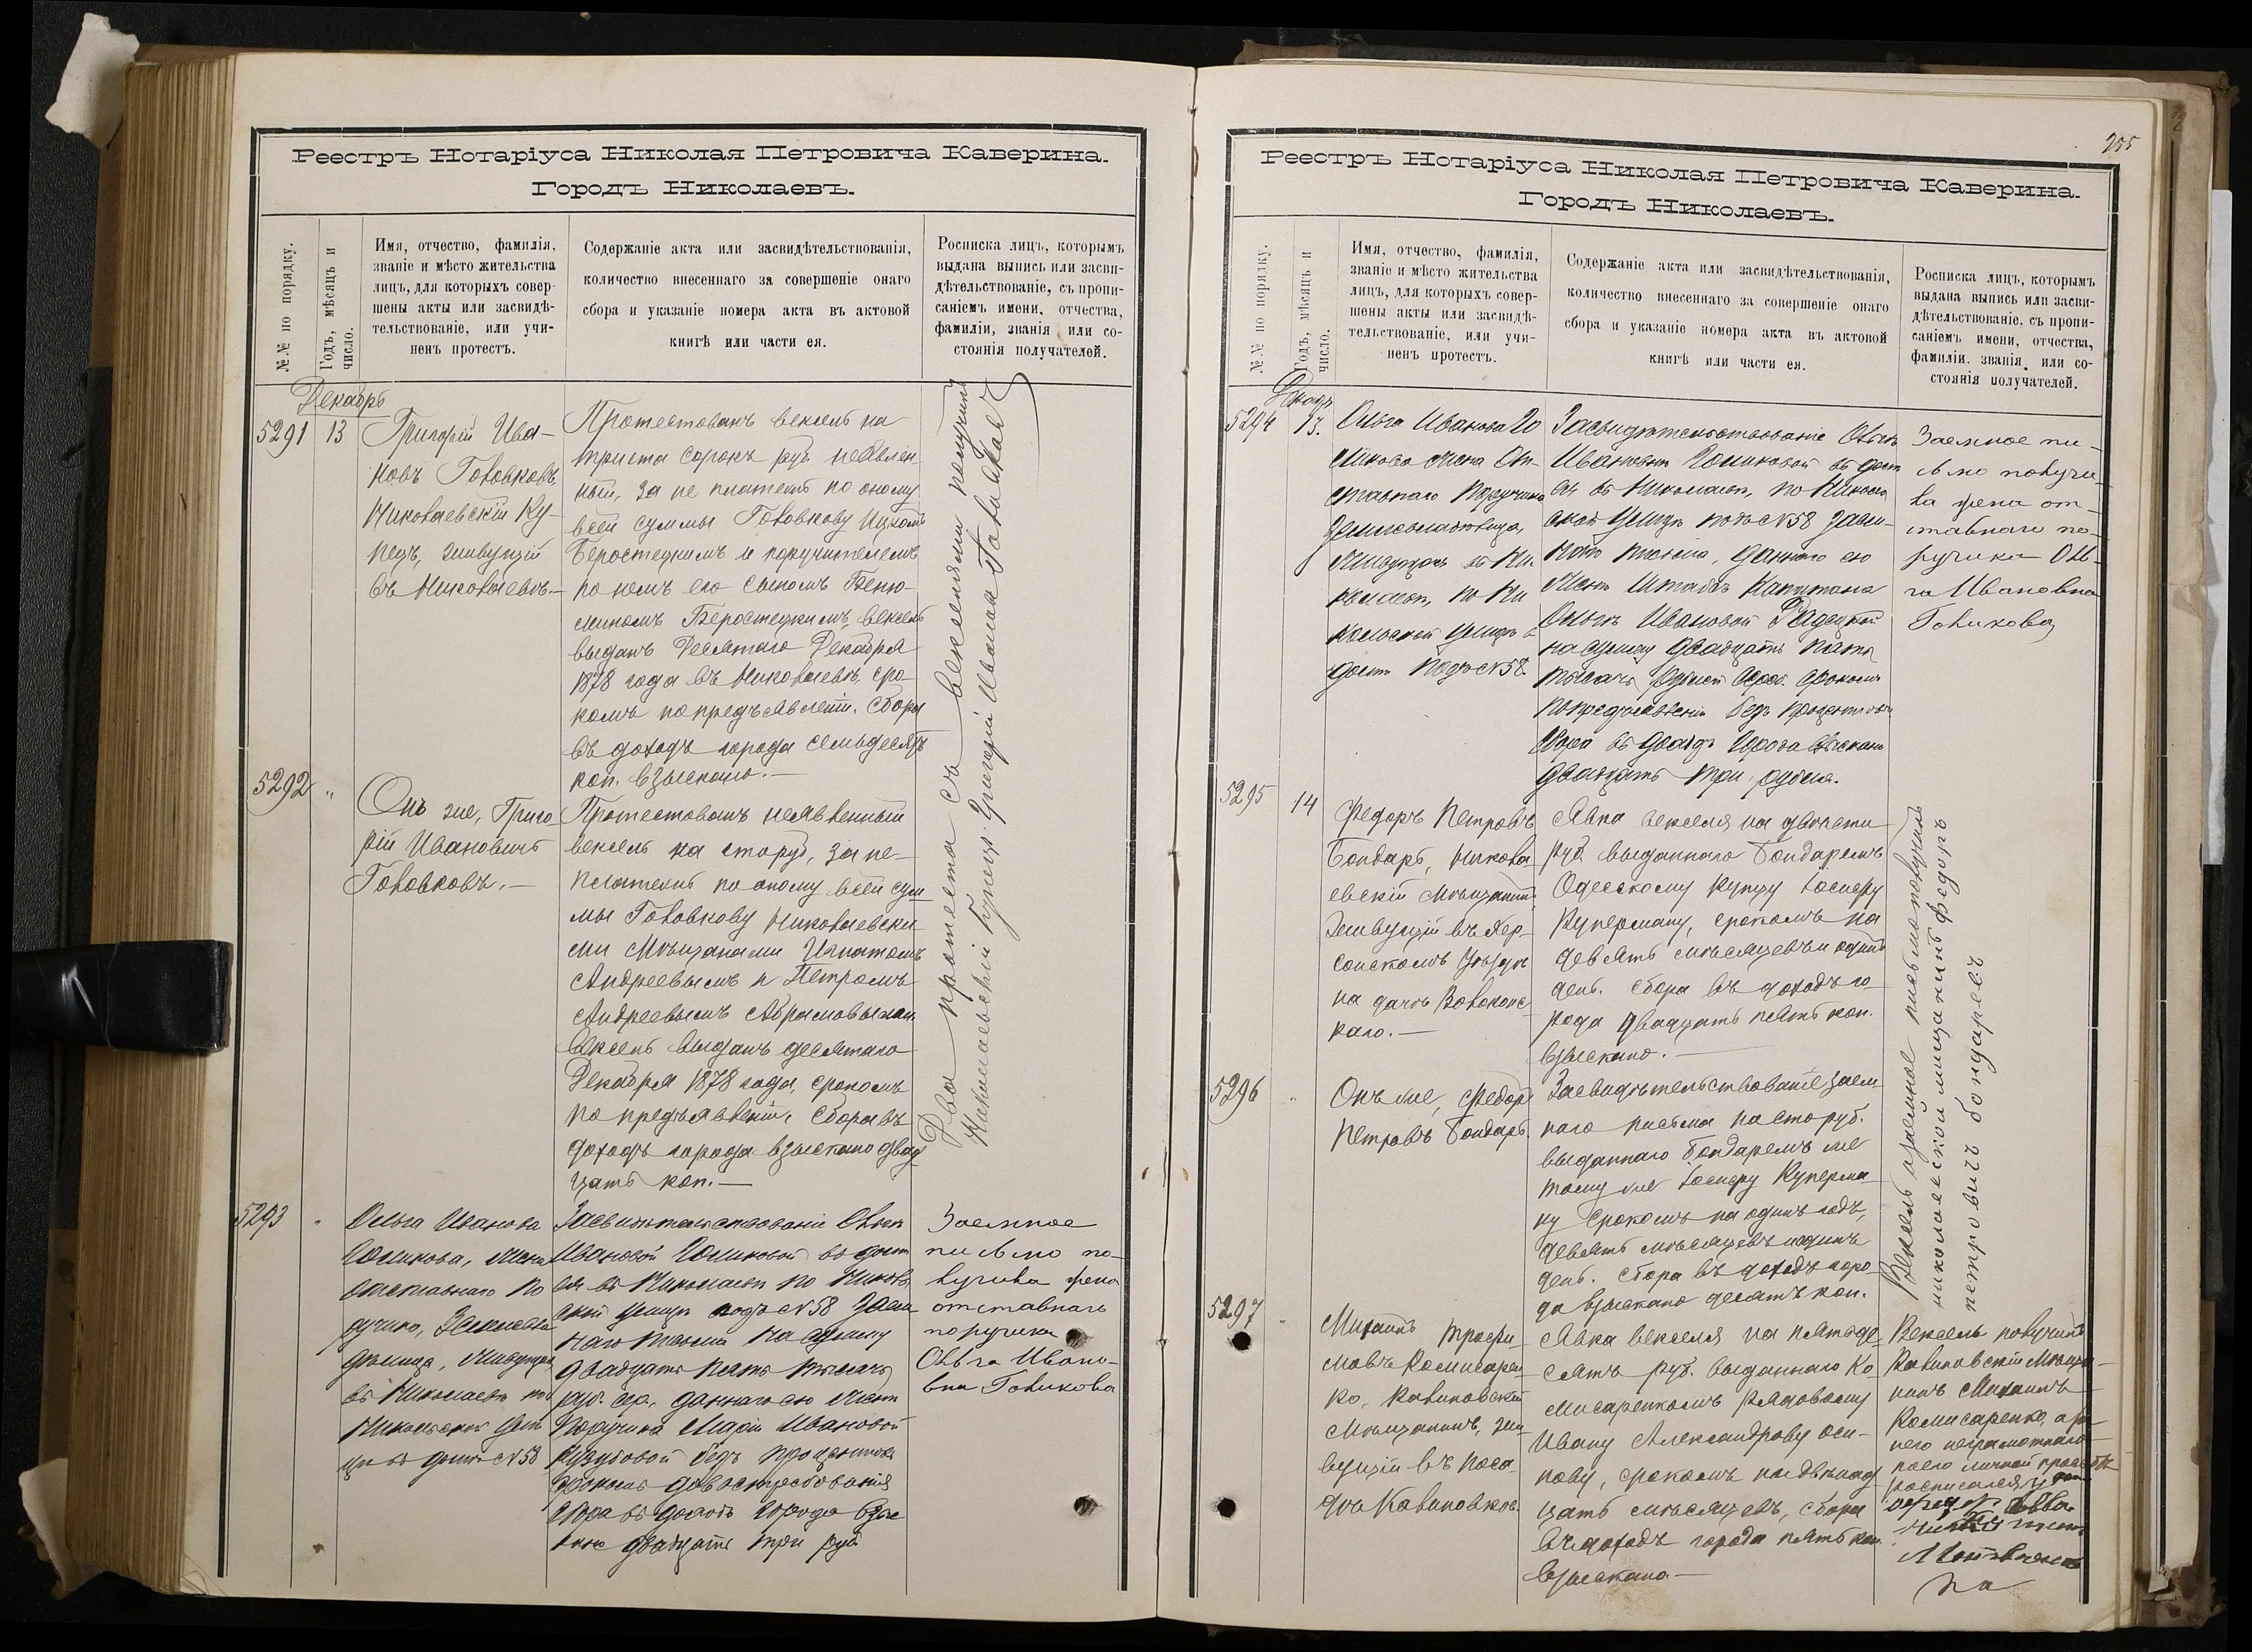 Реестръ Нотаріуса Николая Петровича Каверина.
Городъ Николаевъ.
№№ по порядку.
Годъ, мѣсяцъ и
число.
Имя, отчество, фамилія,
званіе и мѣсто жительства
лицъ, для которыхъ совер-
шены акты или засвидѣ-
тельствованіе, или учи-
ненъ протестъ.
Содержаніе акта или засвидѣтельствованія,
количество внесеннаго за совершеніе онаго
сбора и указаніе номера акта въ актовой
книгѣ или части ея.
Росписка лицъ, которымъ
выдана выпись или засви-
дѣтельствованіе, съ пропи-
саніемъ имени, отчества,
фамиліи, званія или со-
стоянія получателей.
Декабрь
5291
13
Григорій Ива-
новъ Головковъ,
Николаевскій Ку-
пецъ, живущій
въ Николаевѣ.—
Протестованъ вексель на
триста сорокъ руб. неявлен-
ный, за не платежъ по оному
всей суммы Головкову Ицкомъ
Беростецкимъ и поручителемъ
по немъ его сыномъ Беню-
миномъ Беростецкимъ, вексель
выданъ Десятаго Декабря
1878 года въ Николаевѣ сро-
комъ по предъявленіи. Сбора
въ доходъ города семьдесятъ
коп. взыскано.—
Два протеста съ векселями получилъ
Николаевскій Купецъ Григорій Ивановъ Головковъ
5292
"
Онъ же, Григо-
рій Ивановичъ
Головковъ.—
Протестованъ неявленный
вексель на сто руб, за не-
платежъ по оному всей сум
мы Головкову Николаевски-
ми Мѣщанами Игнатомъ
Андреевымъ и Петромъ
Андреевымъ Абрамовыми
вексель выданъ десятаго
Декабря 1878 года, срокомъ
по предъявленіи, сбора въ
доходъ города взыскано двад
цать коп.—
5293
"
Ольга Иванова
Голикова, жена
отставнаго По
ручика, Землевла
дѣлица, живущая
въ Николаевѣ по
Никольской ули
цѣ въ домѣ № 58
Засвидѣтельствованіе Ольги
Ивановой Голиковой въ домѣ
ея въ Николаевѣ по Николь
ской улицѣ подъ № 58 заем
наго письма на сумму
двадцать пять тысячъ
руб. сер, даннаго ею женѣ
Поручика Маріи Ивановой
Кузубовой безъ процентовъ
срокомъ до востребованія
сбора въ доходъ города взы
скано двадцать три руб
Заемное
письмо по-
лучила жена
отставнаго
поручика
Ольга Ивано-
вна Голикова
255
Реестръ Нотаріуса Николая Петровича Каверина.
Городъ Николаевъ.
№№ по порядку.
Годъ, мѣсяцъ и
число.
Имя, отчество, фамилія,
званіе и мѣсто жительства
лицъ, для которыхъ совер-
шены акты или засвидѣ-
тельствованіе, или учи-
ненъ протестъ.
Содержаніе акта или засвидѣтельствованія,
количество внесеннаго за совершеніе онаго
сбора и указаніе номера акта въ актовой
книгѣ или части ея.
Росписка лицъ, которымъ
выдана выпись или засви-
дѣтельствованіе, съ пропи-
саніемъ имени, отчества,
фамиліи, званія, или со-
стоянія получателей.
Декабрь
5294
13.
Ольга Иванова Го
ликова жена От-
ставнаго Поручика
Землевладѣлица,
живущая въ Ни-
колаевѣ, по Ни
кольской улицѣ въ
домѣ подъ № 58.
Засвидѣтельствованіе Ольги
Ивановой Голиковой въ домѣ
ея въ Николаевѣ, по Николь
ской улицѣ подъ № 58 заем-
наго письма, даннаго ею
женѣ Штабсъ Капитана
Ольгѣ Ивановой
на сумму двадцать пять
тысячъ рублей сереб. срокомъ
по предъявленіи безъ процентовъ
сбора въ доходъ города взыскано
двадцать три рубля.
Заемное пи-
сьмо получи-
ла жена от-
ставнаго по-
ручика Оль-
га Ивановна
Голикова
5295
14
Федоръ Петровъ
Бондарь, Никола
евскій Мѣщанинъ,
живущій въ Хер-
сонскомъ Уѣздѣ
на дачѣ
Явка векселя на двѣсти
руб. выданнаго Бондаремъ
Одесскому купцу Іосифу
Куперману, срокомъ на
девять мѣсяцевъ и одинъ
день. Сбора въ доходъ го
рода двадцать пять коп.
взыскано.—
Вексель заемное письмо получилъ
николаевской мищанинъ Федоръ
петровичъ бондаревъ
5296
"
Онъ же, Федоръ
Петровъ Бондарь.
Засвидѣтельствованіе заем
наго письма на сто руб.
выданнаго Бондаремъ же
тому же Іосифу Куперма
ну срокомъ на одинъ годъ,
девять мѣсяцевъ и одинъ
день. Сбора въ доходъ горо-
да взыскано десять коп.
5297
"
Михаилъ Трофи
мовъ Комисарен-
ко, Калиновскій
Мѣщанинъ, жи-
вущій въ поса-
дѣ Калиновкѣ.
Явка векселя на пятьде
сятъ руб. выданнаго Ко
мисаренкомъ рядовому
Ивану Александрову Оси-
пову, срокомъ на двѣнад
цать мѣсяцевъ, сбора
въ доходъ города пять коп.
взыскано.—
Вексель получилъ
Калиновскій Мѣща-
нинъ Михаилъ
Комисаренко, а за
него неграмотнаго
по его личной просьбѣ
росписался